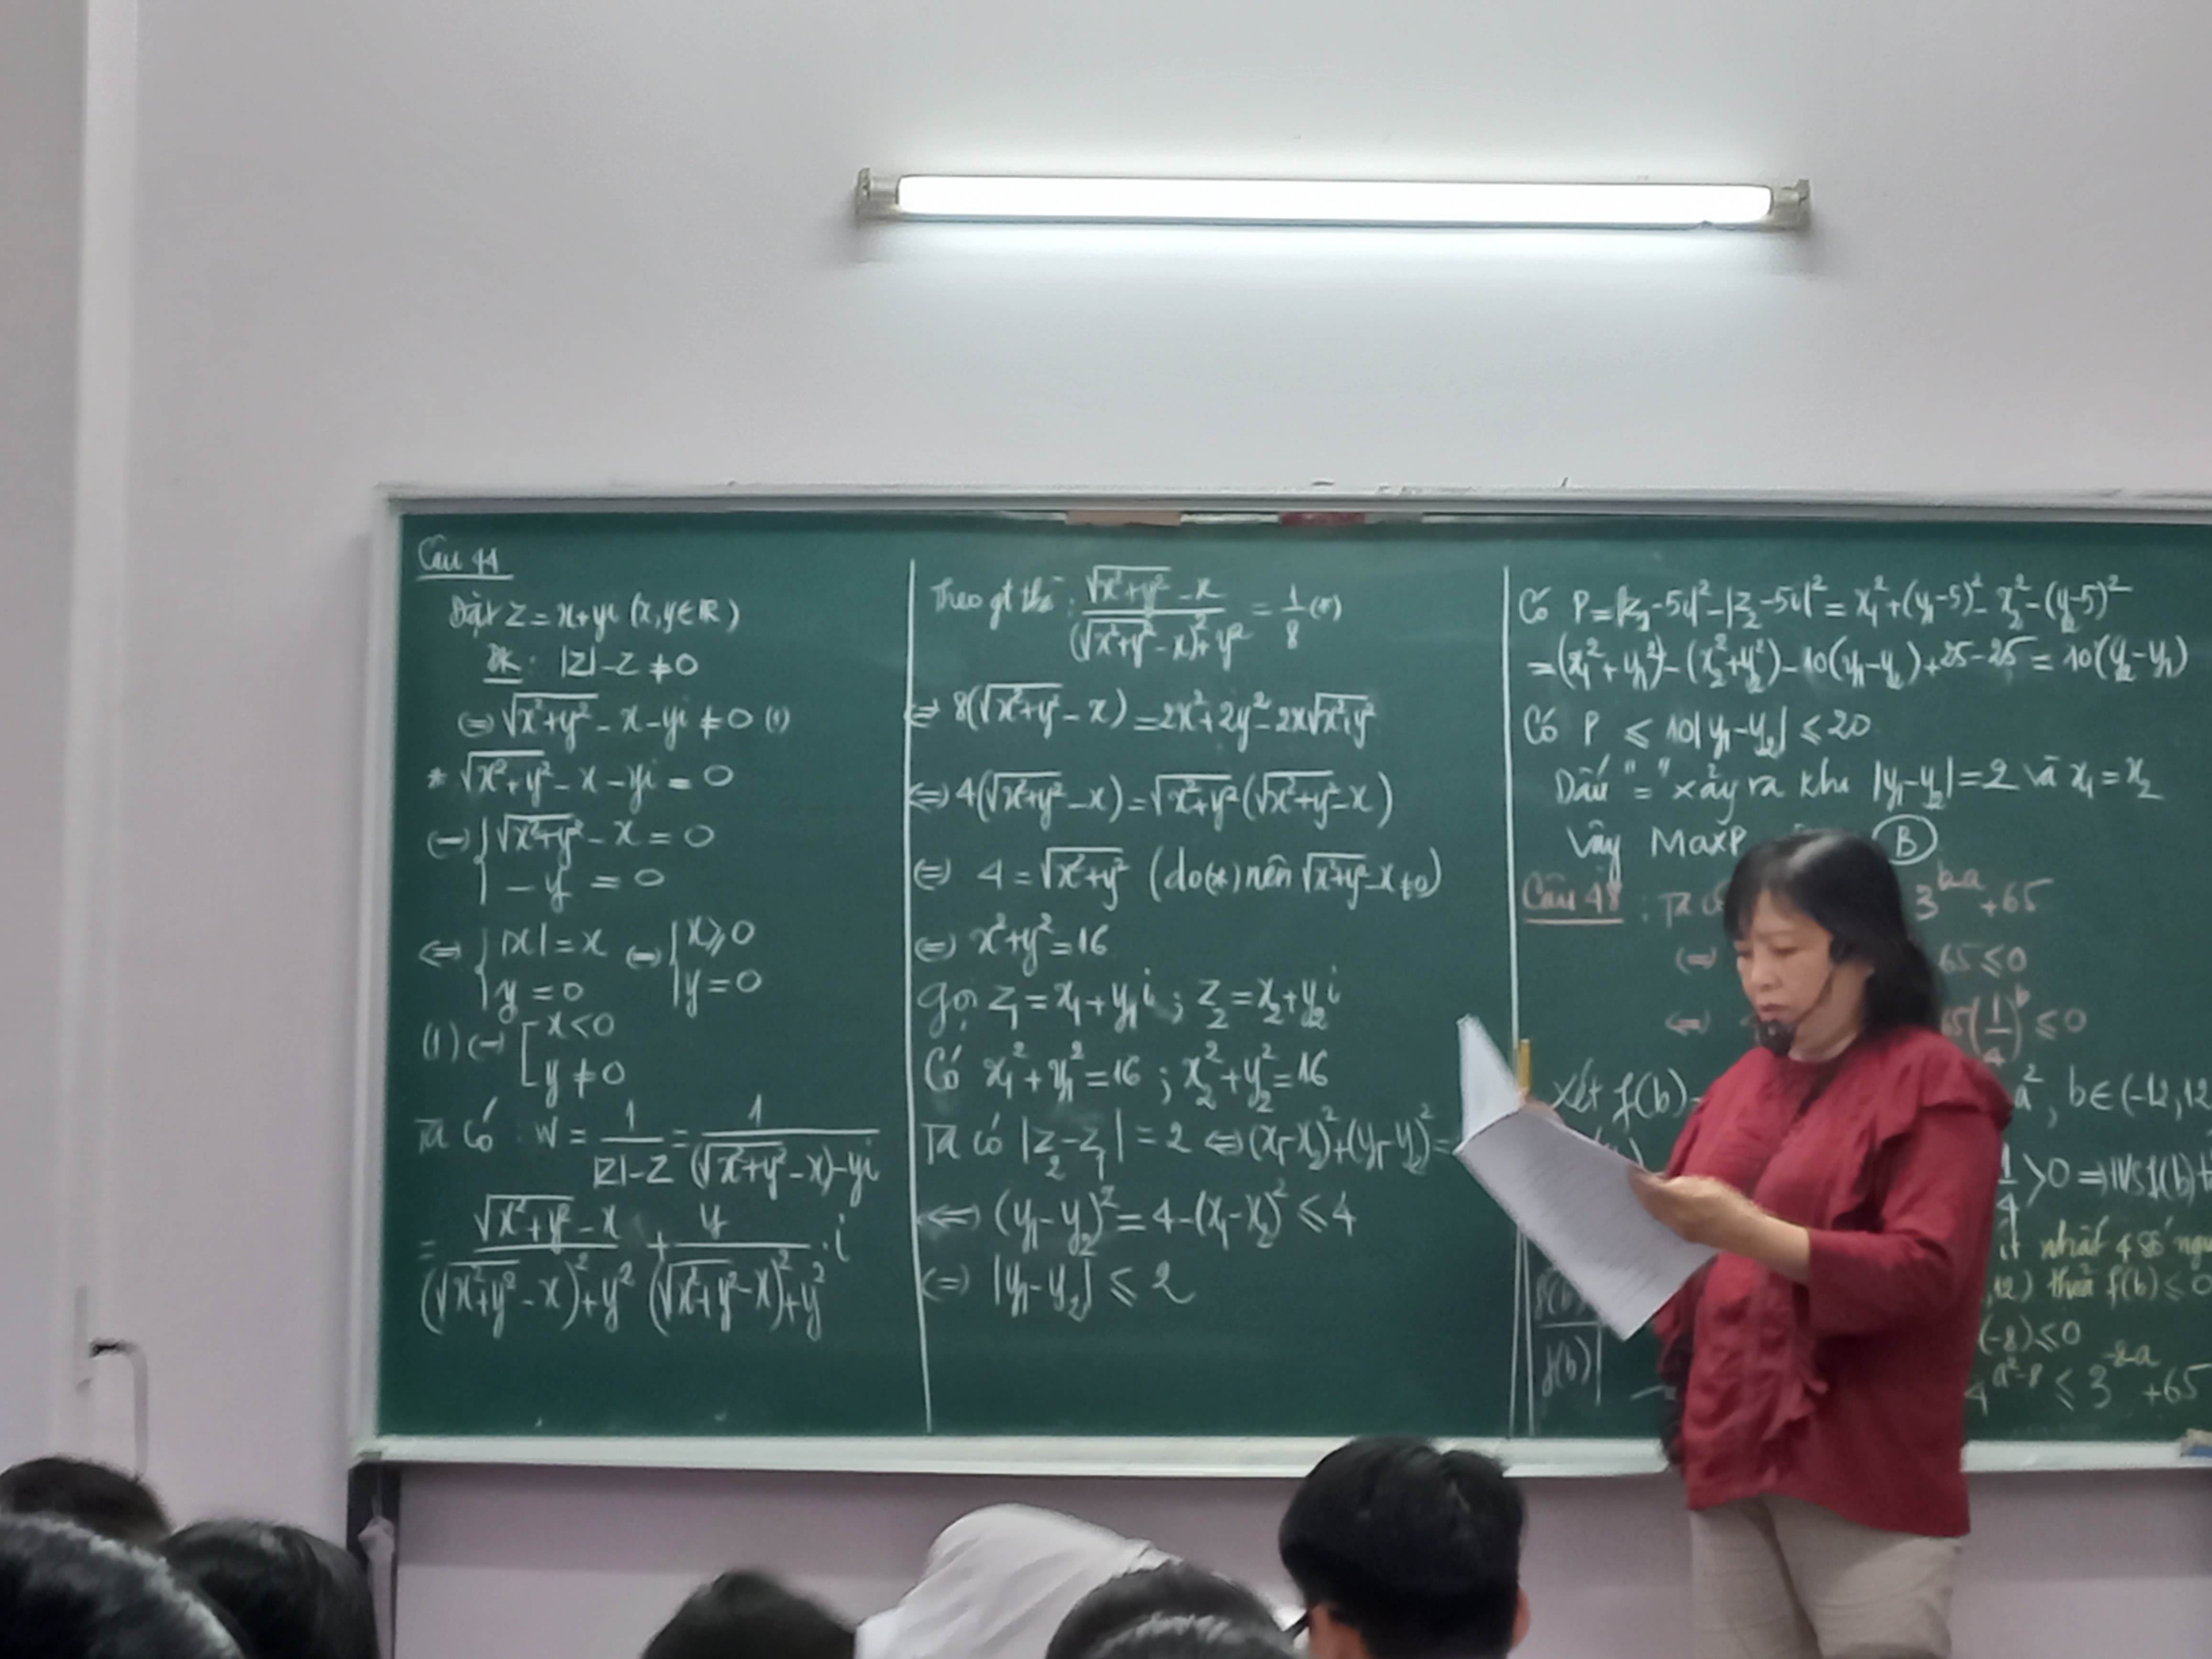 Câu 44
Đặt z = x+yi (x,y∈ℝ)
ĐK: |z|-z ≠ 0
⇔ √(x²+y²) - x - yi ≠ 0 (1)
* √(x²+y²) - x - yi = 0
⇔ { √(x²+y²) - x = 0
{ -y = 0
⇔ { |x| = x ⇔ { x ⩾ 0
{ y = 0 { y = 0
(1) ⇔ [ x < 0
[ y ≠ 0
Ta có: w = 1/(|z|-z) = 1/((√(x²+y²) - x) - yi)
= (√(x²+y²) - x)/((√(x²+y²) - x)² + y²) + y/((√(x²+y²) - x)² + y²) . i
Theo gt thì: (√(x²+y²) - x)/((√(x²+y²) - x)² + y²) = 1/8 (*)
⇔ 8(√(x²+y²) - x) = 2x² + 2y² - 2x√(x²+y²)
⇔ 4(√(x²+y²) - x) = √(x²+y²)(√(x²+y²) - x)
⇔ 4 = √(x²+y²) (do (*) nên √(x²+y²) - x ≠ 0)
⇔ x²+y² = 16
Gọi z₁ = x₁+y₁i ; z₂ = x₂+y₂i
Có x₁²+y₁² = 16 ; x₂²+y₂² = 16
Ta có |z₂-z₁| = 2 ⇔ (x₁-x₂)²+(y₁-y₂)² =
⇔ (y₁-y₂)² = 4-(x₁-x₂)² ⩽ 4
⇔ |y₁-y₂| ⩽ 2
Có P = |z₁-5i|² - |z₂-5i|² = x₁²+(y₁-5)² - x₂² - (y₂-5)²
= (x₁²+y₁²) - (x₂²+y₂²) - 10(y₁-y₂) + 25 - 25 = 10(y₂-y₁)
Có P ⩽ 10|y₁-y₂| ⩽ 20
Dấu "=" xảy ra khi |y₁-y₂| = 2 và x₁ = x₂
Vậy MaxP B
Câu 48 : Ta có 3^(b-a) + 65
⇔ 65 ⩽ 0
⇔ 65(1/4)^b ⩽ 0
Xét f(b) a², b∈(-12,12
1/4 > 0 ⇒
ít nhất 4 số
,12) thoả f(b) ⩽ 0
(-8) ⩽ 0
f(b)
4^(a²-8) ⩽ 3^(-8-a) + 65